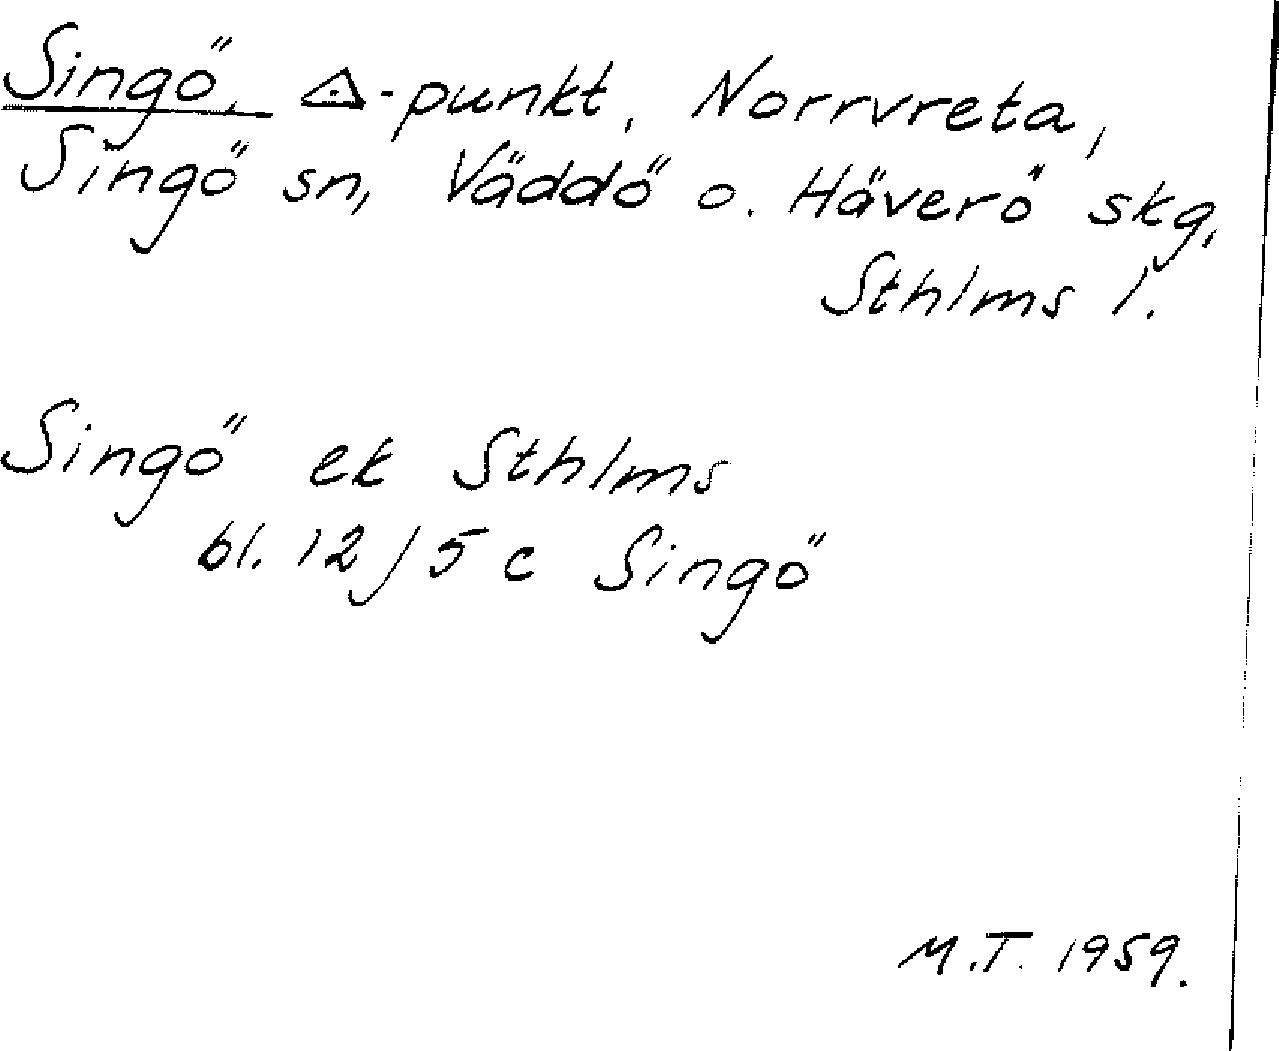 Singö, △-punkt, Norrvreta,
Singö sn, Väddö o. Häverö skg,
Sthlms l.
Singö ek Sthlms
bl. 12 J 5 c Singö
M.T. 1959.